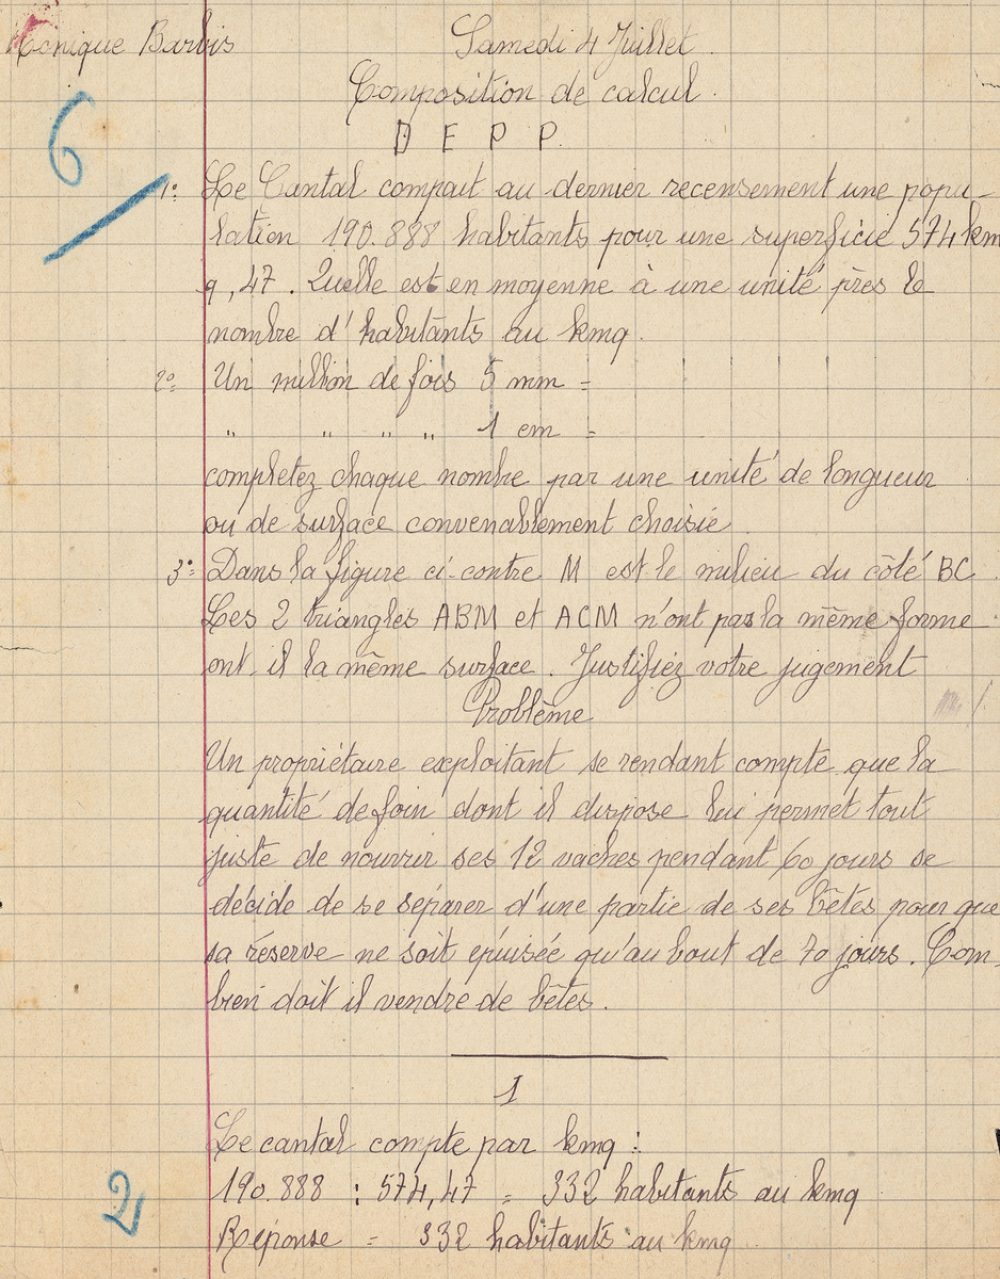 Monique Barbis
Samedi 4 Juillet.
Composition de calcul.
D E P P.
6
1º: Le Cantal comptait au dernier recensement une popu-
lation 190.888 habitants pour une superficie 574 km
q, 47. Quelle est en moyenne à une unité près le
nombre d'habitants au kmq.
2º: Un million de fois 5 mm =
" " " " 1 cm =
completez chaque nombre par une unité de longueur
ou de surface convenablement choisie.
3º: Dans la figure ci-contre M est le milieu du côté BC.
Les 2 triangles ABM et ACM n'ont pas la même forme
ont-il la même surface. Justifiez votre jugement
Problème
Un propriétaire exploitant se rendant compte que la
quantité de foin dont il dispose lui permet tout
juste de nourrir ses 12 vaches pendant 60 jours se
décide de se séparer d'une partie de ses bêtes pour que
sa réserve ne soit épuisée qu'au bout de 70 jours. Com-
bien doit il vendre de bêtes.
1
Le cantal compte par kmq :
2
190.888 : 574,47 = 332 habitants au kmq
Réponse = 332 habitants au kmq.